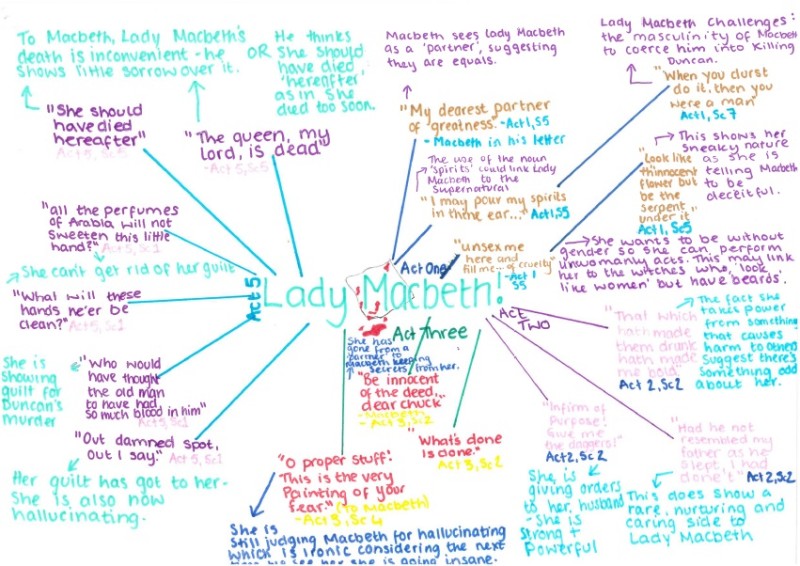 To Macbeth, Lady Macbeth's
death is inconvenient - he
shows little sorrow over it.
OR
He thinks
She should
have died
'hereafter'
as in She
died too soon.
"She should
have died
hereafter"
Act 5, Sc5
"The queen, my
lord, is dead"
- Act 5, Sc5
Macbeth sees Lady Macbeth
as a 'partner', suggesting
they are equals.
"My dearest partner
of greatness. - Act 1, S5
- Macbeth in his letter
Lady Macbeth Challenges
the masculinity of Macbeth
to coerce him into Killing
Duncan.
"When you durst
do it, then you
were a man"
Act 1, Sc7
The use of the noun
'spirits' could link Lady
Macbeth to the
Supernatural
"I may pour my spirits
in thine ear..." Act 1, S5
"Look like
th'innocent
flower but
be the
serpent
under it
Act 1, Sc5
This shows her
sneaky nature
as she is
telling Macbeth
to be
deceitful.
"all the perfumes
of Arabia will not
sweeten this little
hand?" Act 5, Sc1
She can't get rid of her guilt
"What will these
hands ne'er be
clean?" Act 5, Sc1
"unsex me
here and
fill me... of cruelty"
- Act 1
S5
She wants to be without
gender so she can perform
unwomanly acts. This may link
her to the witches who, 'look
like women' but have beards.
Act One
Act 5
Lady Macbeth!
Act
Two
Act Three
"That which
hath made
them drunk
hath made
me bold"
Act 2, Sc2
The fact she
takes power
from something
that causes
harm to others
Suggest there's
something odd
about her.
She has
gone from a
'partner' to
Macbeth keeping
secrets from her.
"Be innocent
of the deed,..
dear chuck"
- Macbeth
- Act 3, Sc2
She is
showing
guilt for
Duncan's
murder
"Who would
have thought
the old man
to have had
so much blood in him"
Act 5, Sc1
"Out damned spot,
out I say." Act 5, Sc1
Her guilt has got to her-
She is also now
hallucinating.
"O proper stuff!
This is the very
Painting of your
fear." (To Macbeth)
- Act 3, Sc4
She is
Still judging Macbeth for hallucinating
which is ironic considering the next
time we see her she is going insane.
"What's done
is done."
Act 3, Sc2
"Infirm of
Purpose!
Give me
the daggers!"
Act 2, Sc2
She is
giving orders
to her husband
- She is
strong +
Powerful
"Had he not
resembled my
father as he
slept, I had
done't" Act 2, Sc2
This does show a
rare, nurturing and
caring side to
Lady Macbeth